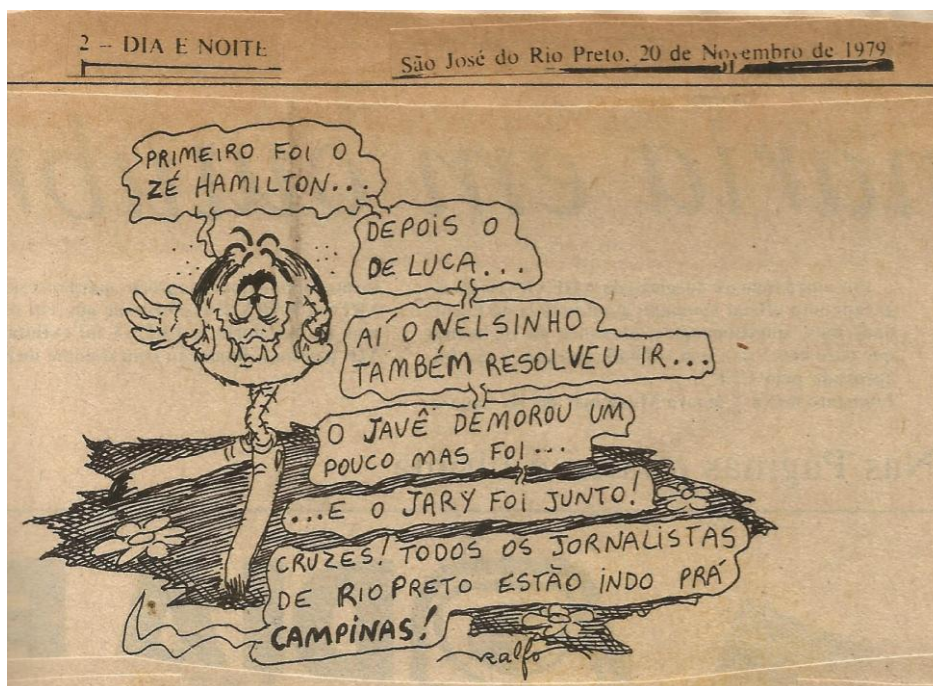 2 - DIA E NOITE
São José do Rio Preto, 20 de Novembro de 1979
PRIMEIRO FOI O
ZÉ HAMILTON...
DEPOIS O
DE LUCA...
AÍ O NELSINHO
TAMBÉM RESOLVEU IR...
O JAVÊ DEMOROU UM
POUCO MAS FOI...
...E O JARY FOI JUNTO!
CRUZES! TODOS OS JORNALISTAS
DE RIO PRETO ESTÃO INDO PRÁ
CAMPINAS!
Ralfo